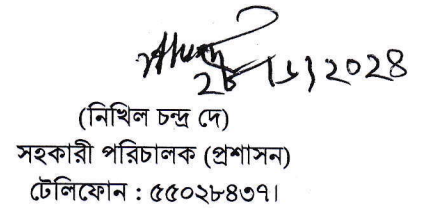 (নিখিল চন্দ্র দে)
সহকারী পরিচালক (প্রশাসন)
টেলিফোন : ৫৫০২৮৪৩৭।